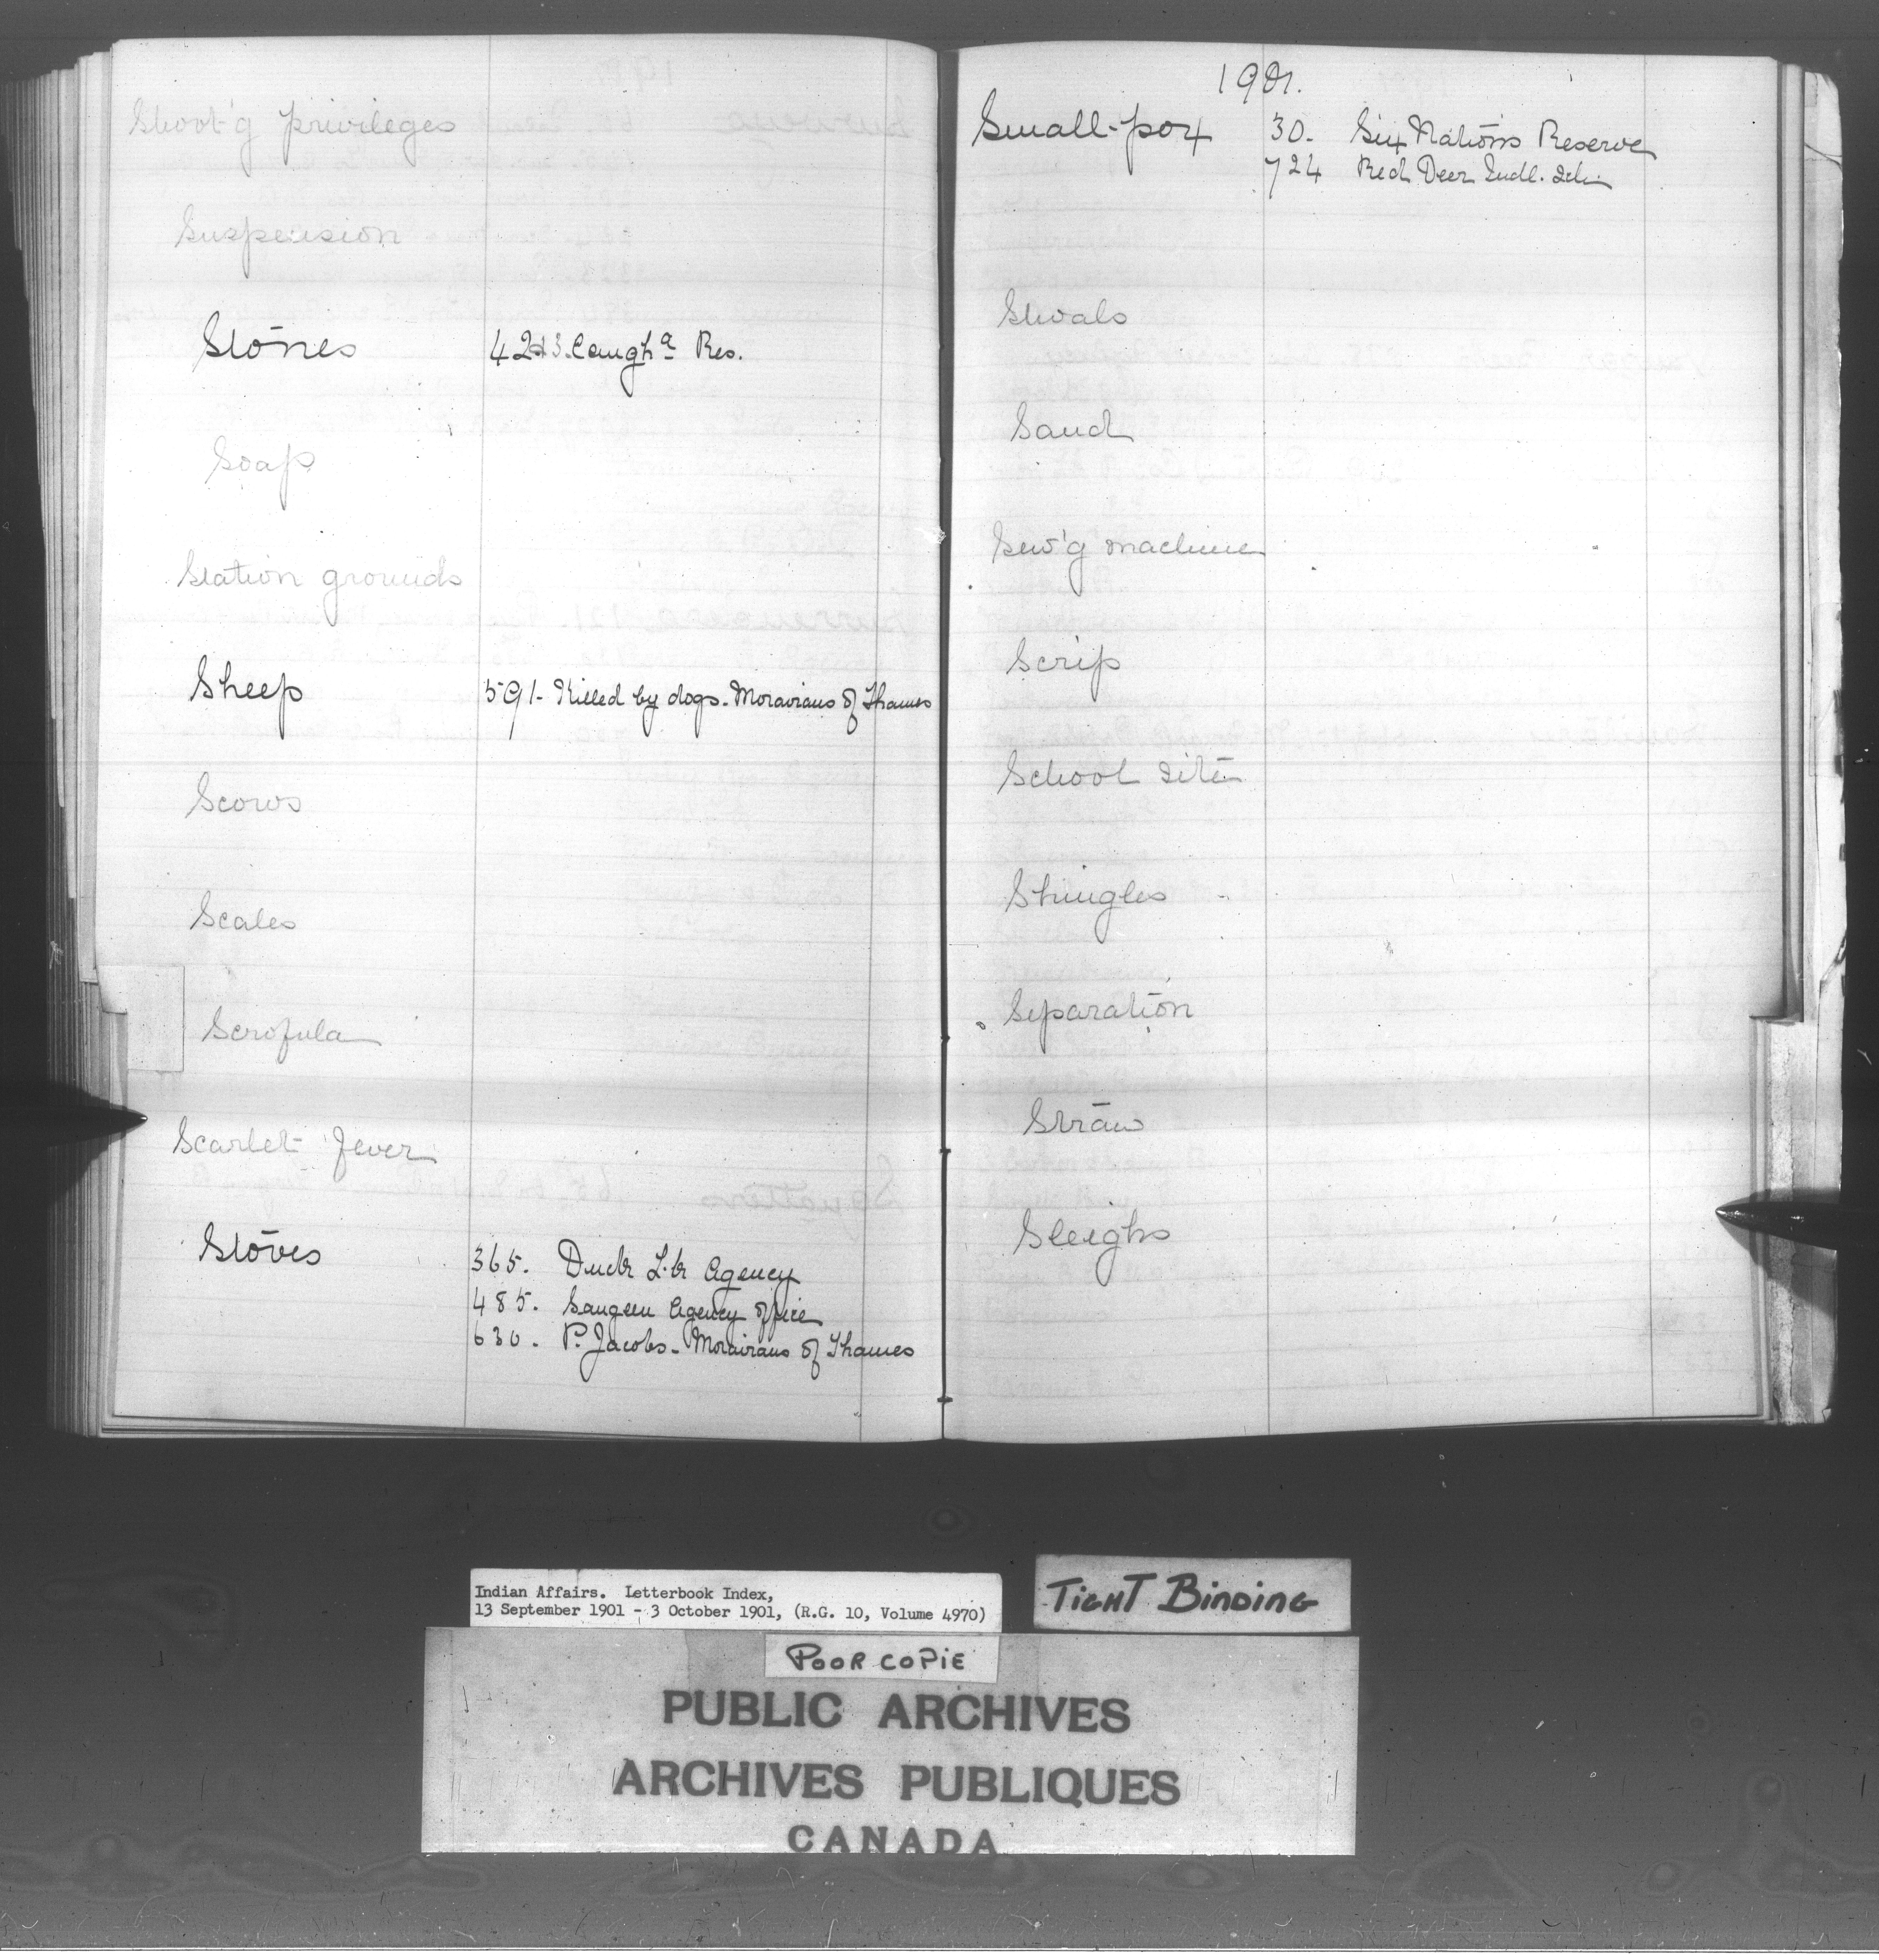 Shoot'g privileges
Suspension
Stones 42 & 3. Caugh<sup>a</sup> Res.
Soap
Station grounds
Sheep 591- Killed by dogs. Moravians of Thames
Scows
Scales
Scrofula
Scarlet fever
Stoves 365. Duck L.k Agency
485. Saugeen Agency office
630. P. Jacobs. Moravians of Thames
1901.
Small-pox 30. Six Nations Reserve
724 Red Deer Indl. Sch.
Shoals
Sand
Sew'g machine
Scrip
School site
Shingles
Separation
Straw
Sleighs
Indian Affairs. Letterbook Index,
13 September 1901 - 3 October 1901, (R.G. 10, Volume 4970)
TIGHT BINDING
POOR COPIE
PUBLIC ARCHIVES
ARCHIVES PUBLIQUES
CANADA